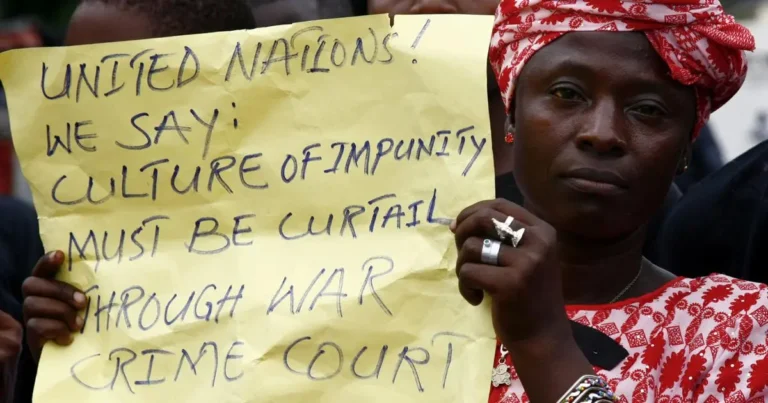 UNITED NATIONS!
WE SAY:
CULTURE OF IMPUNITY
MUST BE CURTAIL
THROUGH WAR
CRIME COURT